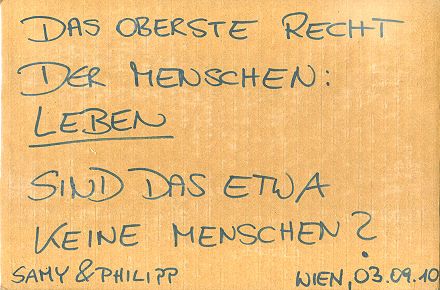 DAS OBERSTE RECHT
DER MENSCHEN:
LEBEN
SIND DAS ETWA
KEINE MENSCHEN?
SAMY & PHILIPP WIEN, 03.09.10